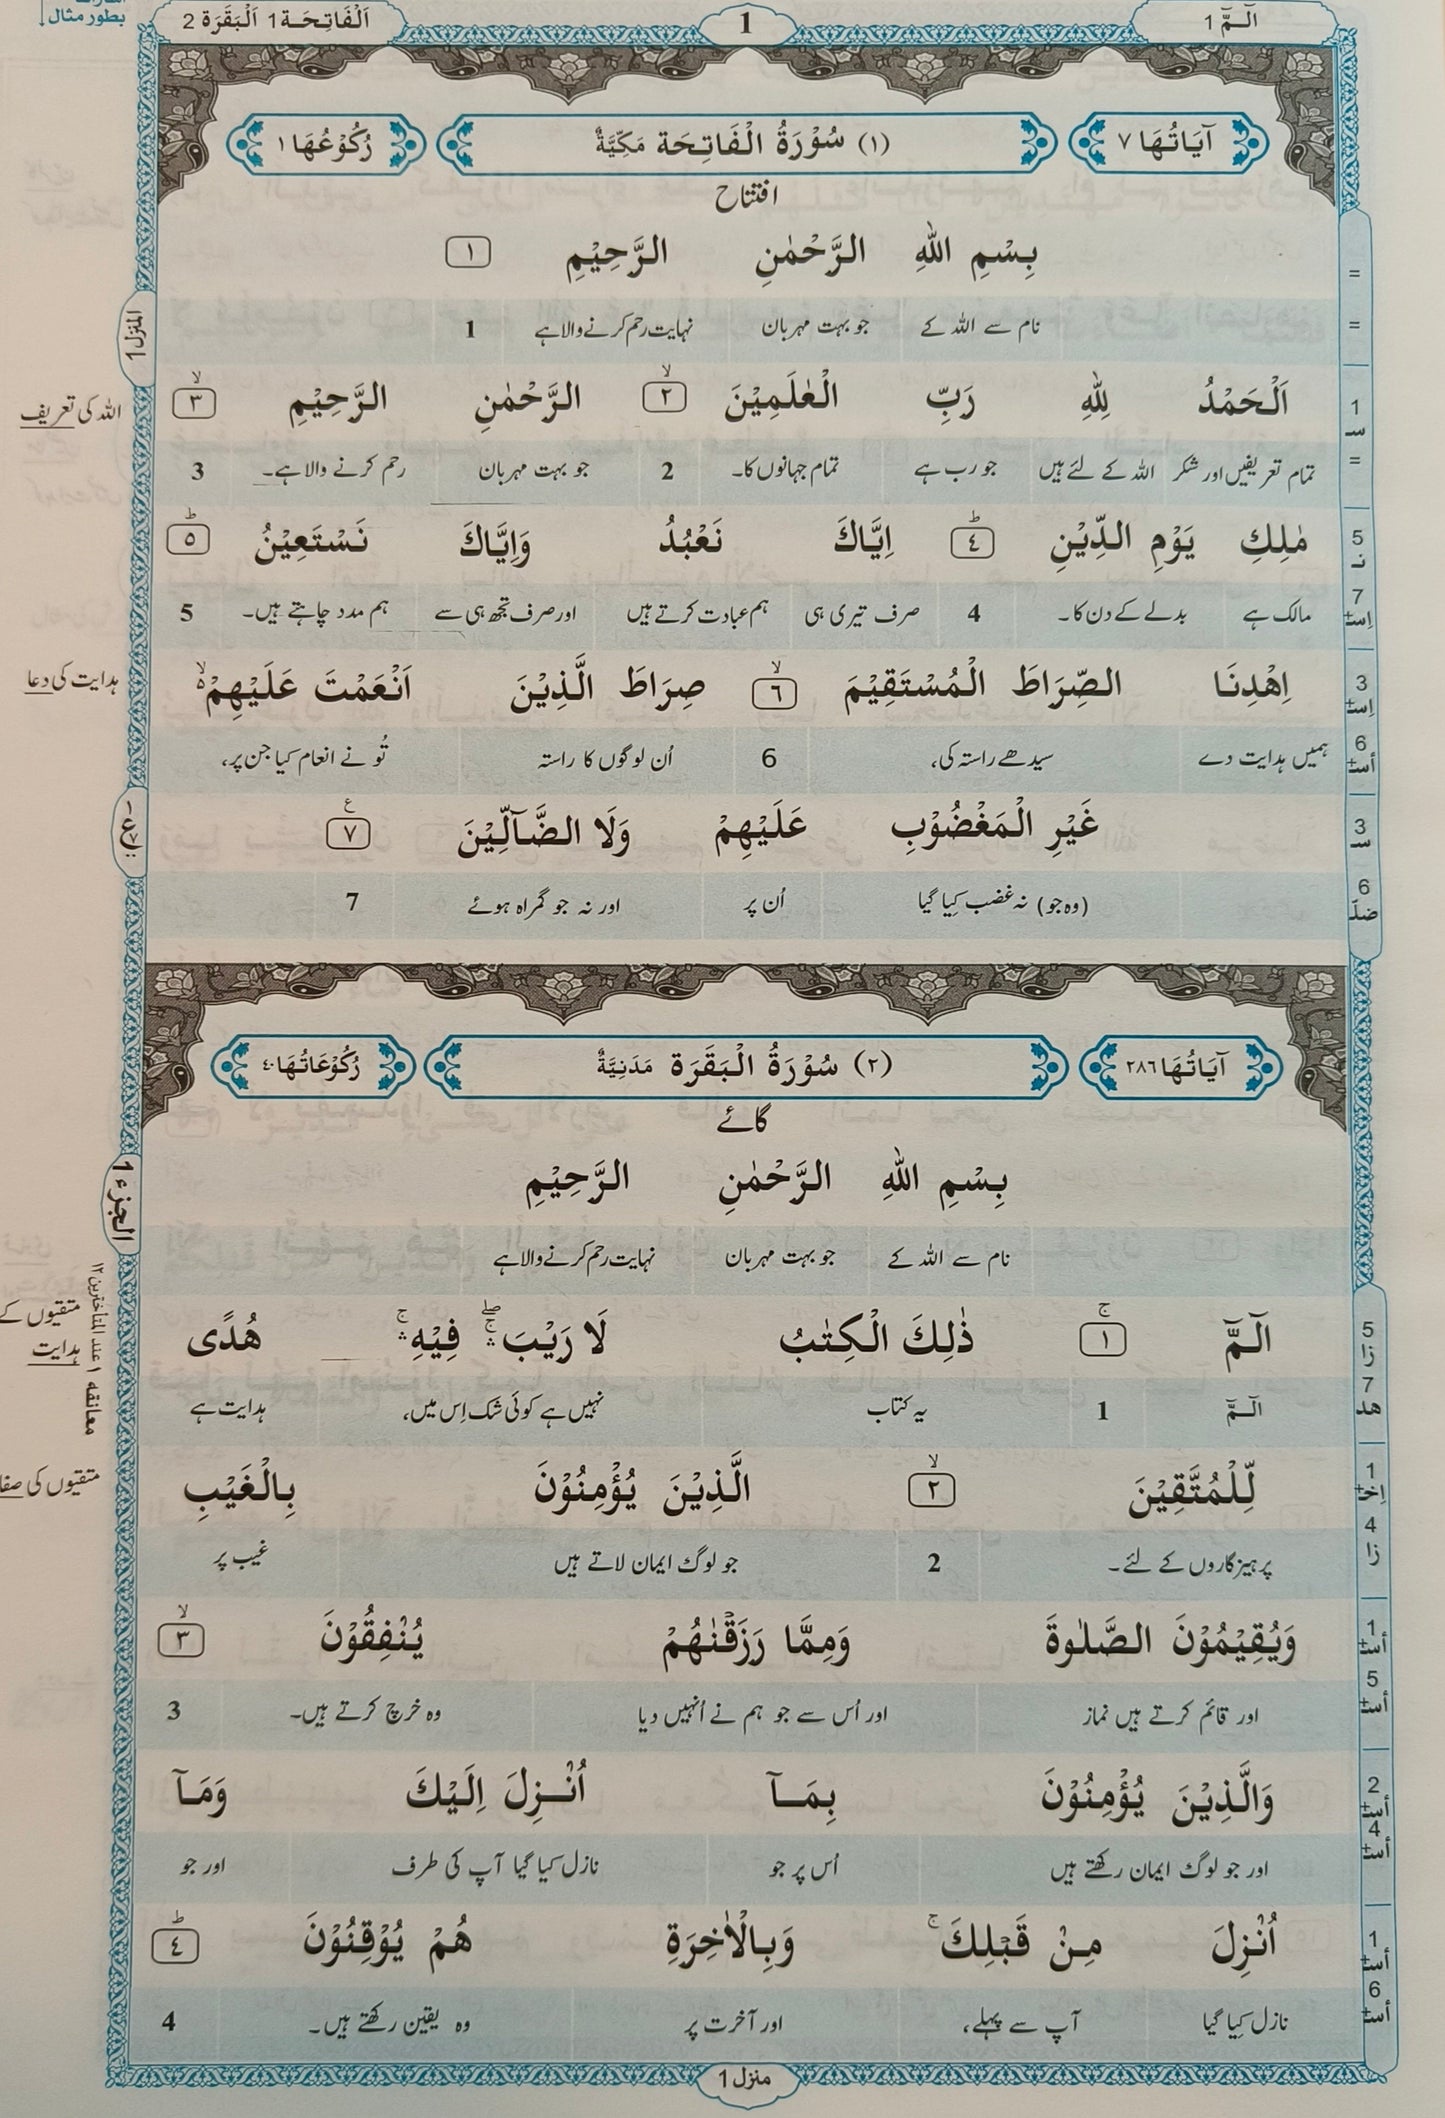 الٓـمّٓ 1
1
اَلْفَاتِحَـة 1 اَلْبَقَرَة 2
بطور مثال
اٰيَاتُهَا ٧
(١) سُوْرَةُ الْفَاتِحَة مَكِّيَّةٌ
رُكُوْعُهَا ١
افتتاح
بِسْمِ اللّٰهِ الرَّحْمٰنِ الرَّحِيْمِ ١
نام سے اللہ کے جو بہت مہربان نہایت رحم کرنے والا ہے 1
اَلْحَمْدُ لِلّٰهِ رَبِّ الْعٰلَمِيْنَ ۙ ٢ الرَّحْمٰنِ الرَّحِيْمِ ۙ ٣
تمام تعریفیں اور شکر اللہ کے لئے ہیں جو رب ہے تمام جہانوں کا۔ 2 جو بہت مہربان رحم کرنے والا ہے۔ 3
مٰلِكِ يَوْمِ الدِّيْنِ ؕ ٤ اِيَّاكَ نَعْبُدُ وَاِيَّاكَ نَسْتَعِيْنُ ؕ ٥
مالک ہے بدلے کے دن کا۔ 4 صرف تیری ہی ہم عبادت کرتے ہیں اور صرف تجھ ہی سے ہم مدد چاہتے ہیں۔ 5
اِهْدِنَا الصِّرَاطَ الْمُسْتَقِيْمَ ۙ ٦ صِرَاطَ الَّذِيْنَ اَنْعَمْتَ عَلَيْهِمْ ۙ
ہمیں ہدایت دے سیدھے راستہ کی، 6 اُن لوگوں کا راستہ تُو نے انعام کیا جن پر،
غَيْرِ الْمَغْضُوْبِ عَلَيْهِمْ وَلَا الضَّآلِّيْنَ ٧
(وہ جو) نہ غضب کِیا گیا اُن پر اور نہ جو گمراہ ہوئے 7
المنزل 1
اللہ کی تعریف
ہدایت کی دعا
اٰيَاتُهَا ٢٨٦
(٢) سُوْرَةُ الْبَقَرَة مَدَنِيَّةٌ
رُكُوْعَاتُهَا ٤٠
گائے
بِسْمِ اللّٰهِ الرَّحْمٰنِ الرَّحِيْمِ
نام سے اللہ کے جو بہت مہربان نہایت رحم کرنے والا ہے
الٓـمّٓ ۚ ١ ذٰلِكَ الْكِتٰبُ لَا رَيْبَ ۛۖۚ فِيْهِ ۛۚ هُدًى
الٓـمّٓ 1 یہ کتاب نہیں ہے کوئی شک اِس میں، ہدایت ہے
لِّلْمُتَّقِيْنَ ۙ ٢ الَّذِيْنَ يُؤْمِنُوْنَ بِالْغَيْبِ
پرہیزگاروں کے لئے۔ 2 جو لوگ ایمان لاتے ہیں غیب پر
وَيُقِيْمُوْنَ الصَّلٰوةَ وَمِمَّا رَزَقْنٰهُمْ يُنْفِقُوْنَ ۙ ٣
اور قائم کرتے ہیں نماز اور اُس سے جو ہم نے اُنہیں دیا وہ خرچ کرتے ہیں۔ 3
وَالَّذِيْنَ يُؤْمِنُوْنَ بِمَـآ اُنْـزِلَ اِلَيْكَ وَمَـآ
اور جو لوگ ایمان رکھتے ہیں اُس پر جو نازل کیا گیا آپ کی طرف اور جو
اُنْزِلَ مِنْ قَبْلِكَ ۚ وَبِالْاٰخِرَةِ هُمْ يُوْقِنُوْنَ ؕ ٤
نازل کِیا گیا آپ سے پہلے، اور آخرت پر وہ یقین رکھتے ہیں۔ 4
الجزء 1
معانقه ١ عند المتأخرين ١٢
متقیوں کے
ہدایت
متقیوں کی
منزل 1